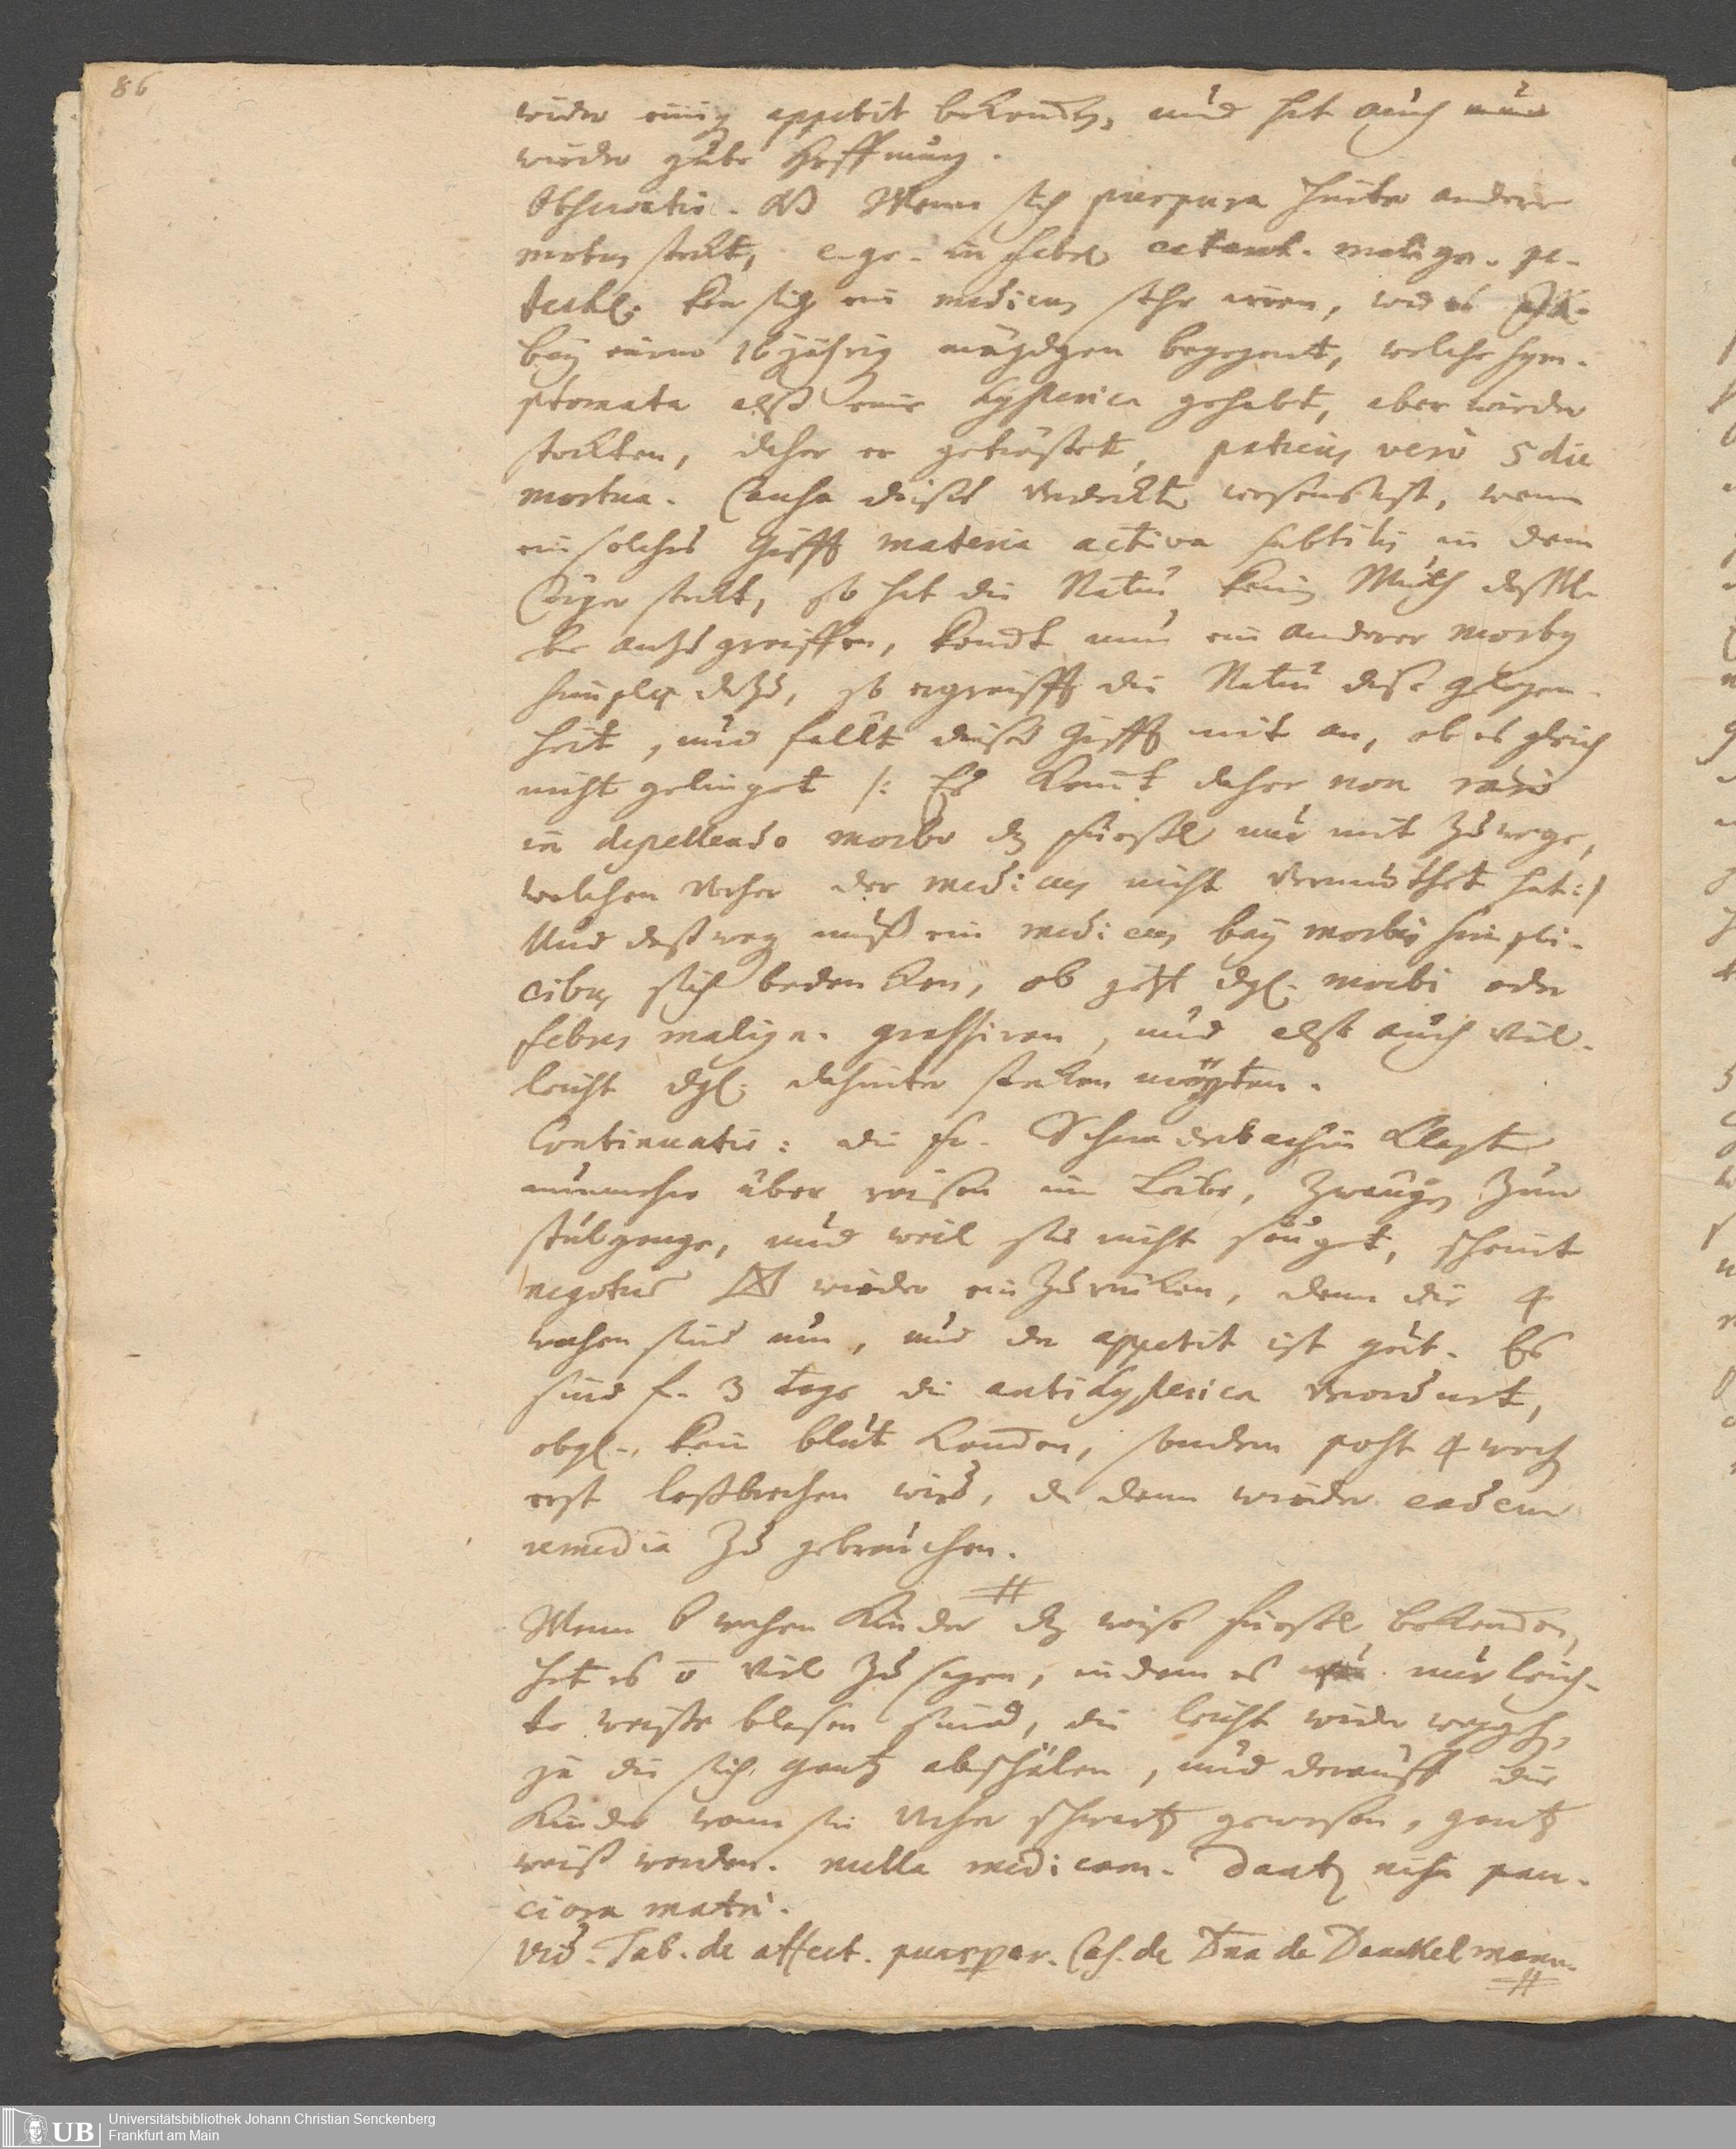 86
wieder einig appetit bekomen, und hat auch nun
wieder gute Hoffnung.
Observatio. NB Wenn sich purpura hinter andere
morbos stekt, e. gr. in febre catarrh. malign. pe-
techl. kan sich ein medicus sehr irren, wie es
bey einem 16 jährig mägdgen begegnet, welche sym-
ptomata alß eine hysterica gehabt, aber wieder
stekten, daher er getröstet, patiens vero 5 die
mortua. Causa dieses verdekten wesens ist, wenn
ein solches Gifft materia activa subtilis in dem
Cörper stekt, so hat die Natur keinen Muth dassel-
be anzugreiffen, komt nun ein anderer morbus
simplex dazu, so ergreifft die Natur diese gelegen-
heit, und fällt dieses Gifft mit an, ob es gleich
nicht gelinget /: Es komt daher non raro
in depellendo morbo das friesel nur mit zuwege,
welchen vorher der medicus nicht vermuthet hat :/
Und deßweg muß ein medicus bey morbis simpli-
cibus sich bedenken, ob jetzt dgl. morbi oder
febres malign. grassiren, und also auch viel-
leicht dgl. dahinter steken mögten.
Continuatio: die Fr. Schwaderbachin klagte
nunmehr über reisen im Leibe, Zwang zum
stulgange, und weil sie nicht säuget, scheint
negotium wieder einzurüken, denn die 4
wochen sind um, und der appetit ist gut. Es
sind f. 3 tage die antihysterica verordnet,
obgl. kein blut komen, sondern post 4 woch
erst loßbrechen wird, da dann wieder eadem
remedia zu gebrauchen.
#
Wenn 6 wochen Kinder das weise friesel bekomen,
hat es viel zu sagen, indem es nur leich-
te weisse blasen sind, die leicht wieder weggeh,
ja die sich gantz abschälen, und darauff die
Kinder wenn sie vorher schwartz gewesen, gantz
weiß werden. nulla medicam. dantur nisi pau-
ciora matri.
vid. Tab. de affect. puerper. Cas. de Dna de Danckelmann.
#
Universitätsbibliothek Johann Christian Senckenberg
UB Frankfurt am Main